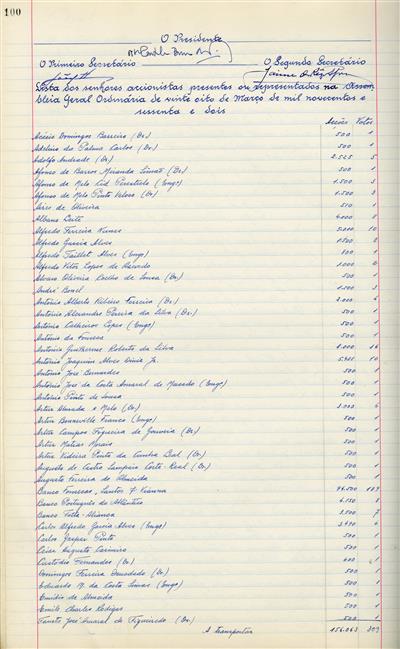 100
O Presidente
O Primeiro Secretário O Segundo Secretário
Lista dos senhores accionistas presentes ou representados na Assem-
bleia Geral Ordinária de vinte oito de Março de mil novecentos e
sessenta e dois
Acções Votos
Acácio Domingos Barreiro (Dr.) 500 1
Adelino da Palma Carlos (Dr.) 500 1
Adolfo Andrade (Dr.) 2.525 5
Afonso de Barros Miranda (Dr.) 500 1
Afonso de Melo (Engo) 1.500 3
Afonso de Melo Pinto Veloso (Dr.) 1.500 3
de Oliveira 510 1
Albano Leite 4.000 8
Alfredo Ferreira Nunes 5.000 10
Alfredo Garcia Alves
Alfredo Taillet Alves (Engo) 1
Alfredo Vitor Lopes de Azevedo 1.000
Alvaro Oliveira Coelho de Sousa (Dr.) 500 1
André Borel 1.500 3
António Alberto Ribeiro Ferreira (Dr.)
António Alexandre Pereira da Silva (Dr.) 500 1
António Calheiros Lopes (Engo) 500 1
António da Fonseca 500 1
António Guilherme Roberto da Silva 8.000 16
António Joaquim Alves Diniz Jr. 10
António José Bernardes 500 1
António José da Costa Amaral de Macedo (Engo) 500 1
António Pinto de Sousa 500 1
Artur Almada e Melo (Dr.)
Artur Bonneville Franco (Engo) 500 1
Artur Campos Figueira de Gouveia (Dr.) 500 1
Artur Matias Morais 500 1
Artur Videira Pinto da Cunha Leal (Dr.) 500 1
Augusto de Castro Sampaio Corte-Real (Dr.) 500 1
Augusto Ferreira de Almeida 500 1
Banco Fonsecas, Santos & Vianna
Banco Português do Atlântico 8
Banco Totta-Aliança 3.500 7
Carlos Alfredo Garcia Alves (Engo) 6
Carlos Gaspar Pinto 500 1
César Augusto Carneiro 500 1
Custódio Fernandes (Dr.) 600 1
Domingos Ferreira Denodado (Dr.) 500 1
Eduardo M. da Costa (Engo) 500 1
Emídio de Almeida 500 1
Emile Charles Rodigas 500 1
Fausto José Amaral de Figueiredo (Dr.) 500 1
A transportar 156.063 309